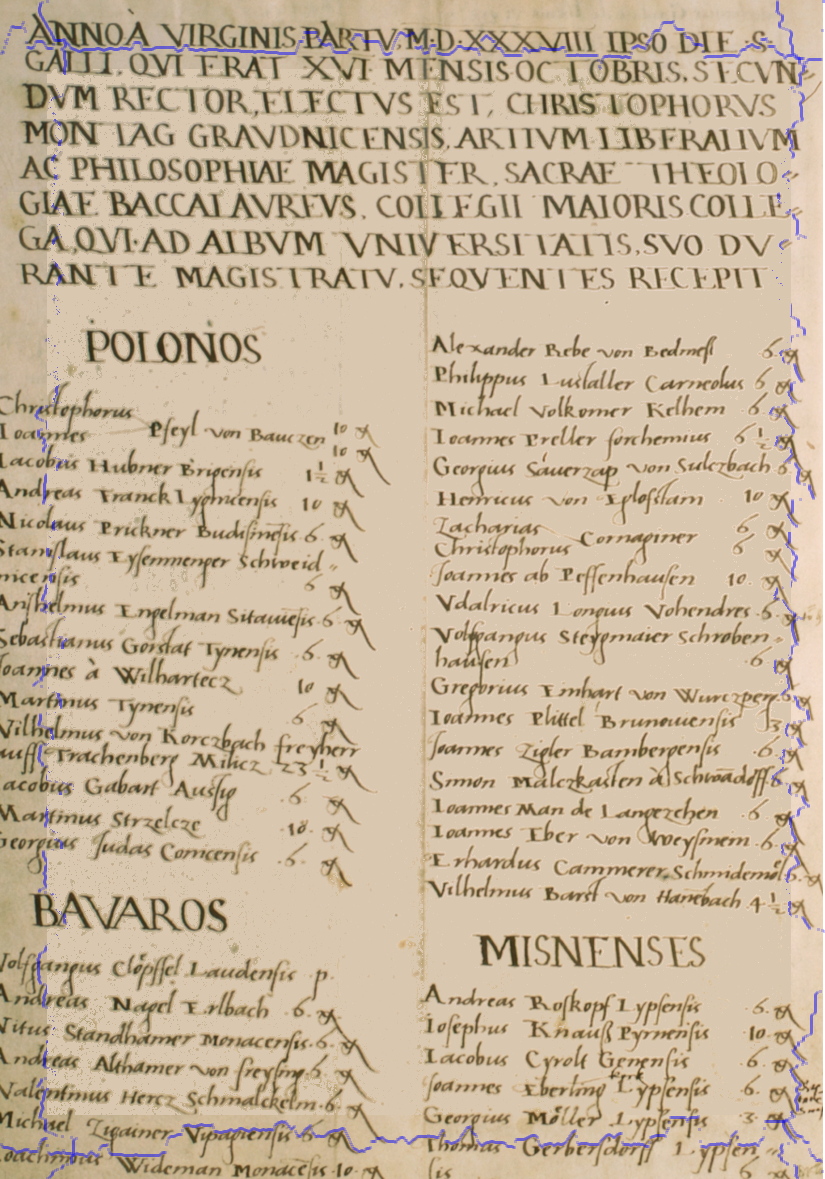 ANNO À VIRGINIS PARTV, M·D·XXXVIII IPSO DIE ·S·
GALLI, QVI ERAT XVI MENSIS OCTOBRIS, SECVN
DVM RECTOR, ELECTVS EST, CHRISTOPHORVS
MONTAG GRAVDNICENSIS, ARTIVM LIBERALIVM
AC PHILOSOPHIAE MAGISTER, SACRAE THEOLO
GIAE BACCALAVREVS, COLLEGII MAIORIS COLLE
GA, QVI·AD ALBVM VNIVERSITATIS, SVO DV
RANTE MAGISTRATV, SEQVENTES RECEPIT
POLONOS
Christophorus
Ioannes Pfeyl von Bauczen 10
10
Iacobus Hubner Brigensis 1½
Andreas Franck Lygnicensis 10
Nicolaus Prickner Budisinesis 6
Stanislaus Eysenmenger Schweid
nicensis 6
Anshelmus Engelman Sitaviesis 6
Sebastianus Gorstat Tynensis 6
Ioannes à Wilhartecz 10
Martinus Tynensis 6
Vilhelmus von Korczbach freyherr
auff Trachenberg Milicz 23½
Iacobus Gabart Aussig 6
Martinus Strzelcze 10
Georgius Judas Comcensis 6
BAVAROS
Wolfgangus Clöpffel Laudensis p.
Andreas Nagel Erlbach 6
Vitus Standhamer Monacensis 6
Andreas Althamer von freysing 6
Valentinus Hercz Schmalckeln 6
Michael Zigainer 6
Ioachimus Wideman Monacesis 10
Alexander Rebe von 6
Philippus Carneolus 6
Michael Volkomer Kelhem 6
Ioannes Preller forchemius 6½
Georgius Sauerzap von Sulczbach 6
Henricus von 10
Zacharias 6
Christophorus Cornaginer 6
Joannes ab Peffenhausen 10
Vdalricus Longus Vohendres 6
Volfgangus Steygmaier Schroben
hausen 6
Gregorius Emhart von Wurczperg 6
Ioannes Plittel Brunouiensis 3
Joannes Zigler Bambergensis 6
Simon Malczkasten à 6
Ioannes Man de Langezehen 6
Ioannes Eber von Weysmein 6
Erhardus Cammerer Schmidemöl 6
Vilhelmus Barst von Hanebach 4½
MISNENSES
Andreas Roskopf Lypsensis 6
Iosephus Knauß Pyrnensis 10
Iacobus Cyrolt Genensis 6
Joannes Eberling Lypsensis 6
Georgius Möller Lypsensis 3
Thomas Gerbersdorff Lypsen
sis 6